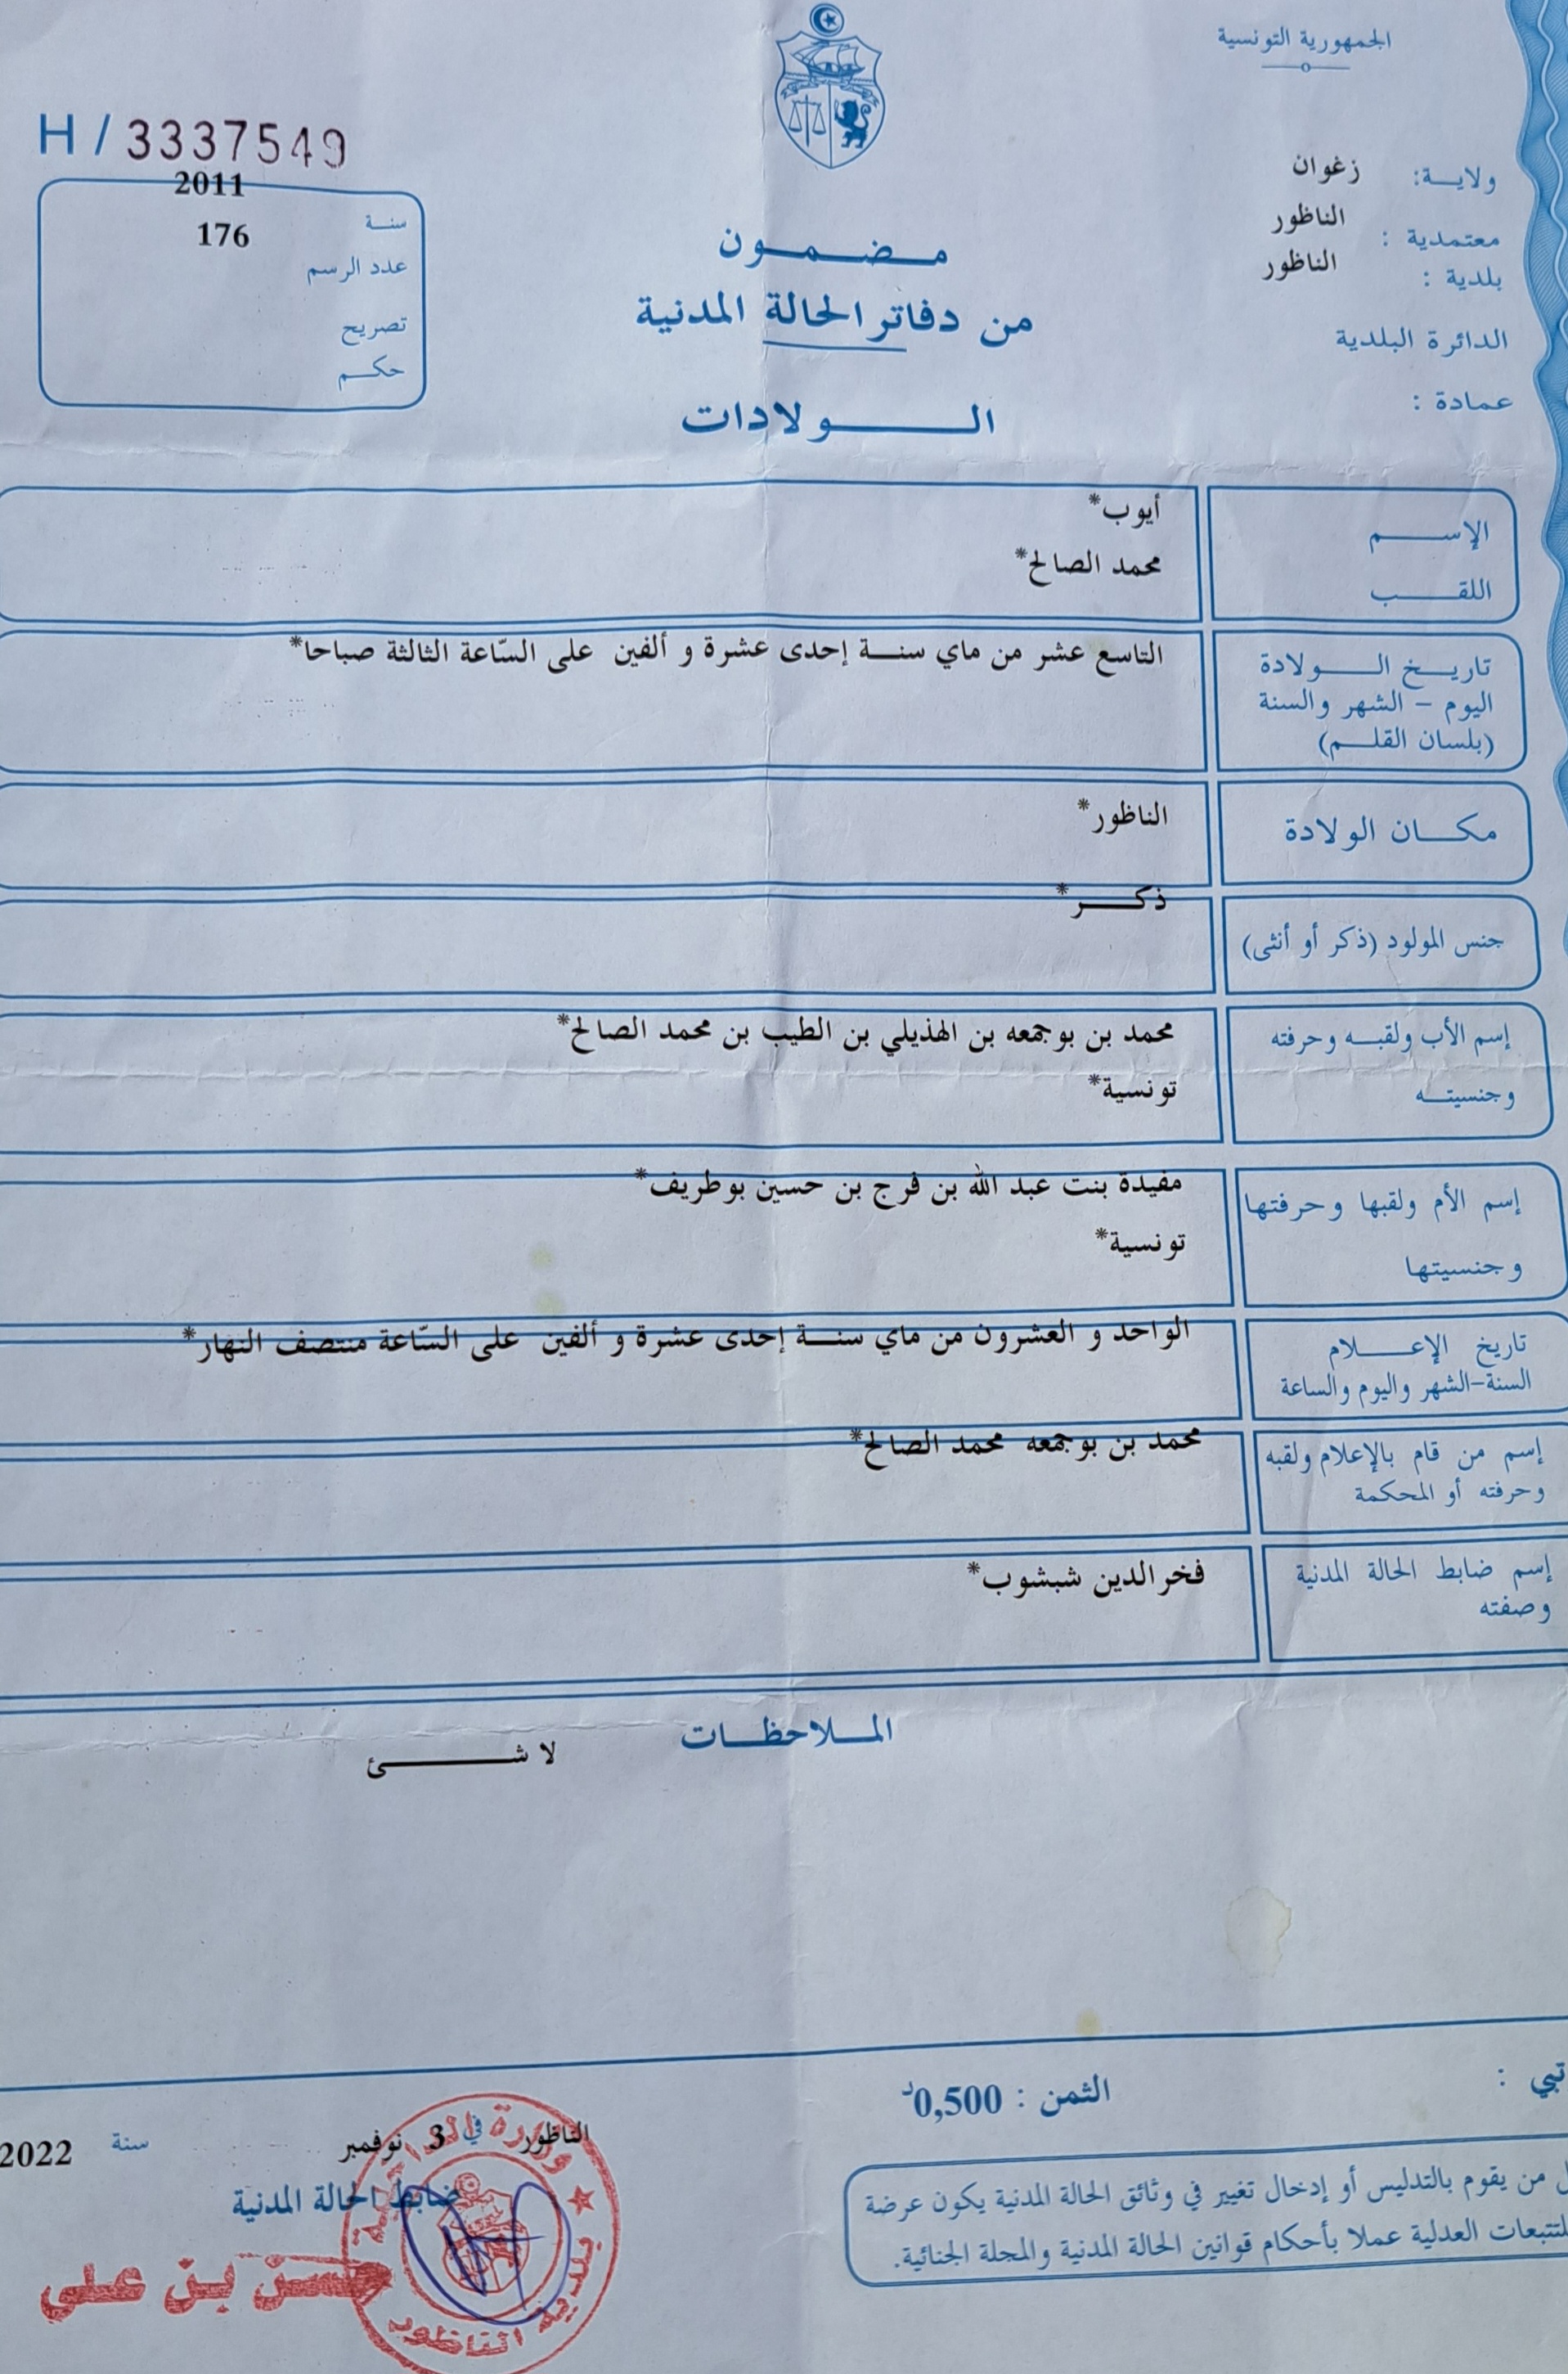 الجمهورية التونسية
H / 3337549
ولايـة: زغوان
معتمدية : الناظور
بلدية : الناظور
الدائرة البلدية
عمادة :
سنـة 2011
عدد الرسم 176
تصريح
حكـم
مـضـمـون
من دفاتر الحالة المدنية
الـولادات
الإسـم أيوب*
اللقـب محمد الصالح*
تاريـخ الـولادة التاسع عشر من ماي سنـة إحدى عشرة و ألفين على السّاعة الثالثة صباحا*
اليوم – الشهر والسنة
(بلسان القلـم)
مكـان الولادة الناظور*
جنس المولود (ذكر أو أنثى) ذكـر*
إسم الأب ولقبـه وحرفته محمد بن بوجمعه بن الهذيلي بن الطيب بن محمد الصالح*
وجنسيتـه تونسية*
إسم الأم ولقبها وحرفتها مفيدة بنت عبد الله بن فرج بن حسين بوطريف*
وجنسيتها تونسية*
تاريخ الإعـلام الواحد و العشرون من ماي سنـة إحدى عشرة و ألفين على السّاعة منتصف النهار*
السنة-الشهر واليوم والساعة
إسم من قام بالإعلام ولقبه محمد بن بوجمعه محمد الصالح*
وحرفته أو المحكمة
إسم ضابط الحالة المدنية فخر الدين شبشوب*
وصفته
المـلاحظـات
لا شـئ
الثمن : 0,500د
الناظور في 3 نوفمبر سنة 2022
ضابط الحالة المدنية
حسن بن علي
بلدية الناظور
من يقوم بالتدليس أو إدخال تغيير في وثائق الحالة المدنية يكون عرضة
للتتبعات العدلية عملا بأحكام قوانين الحالة المدنية والمجلة الجنائية.